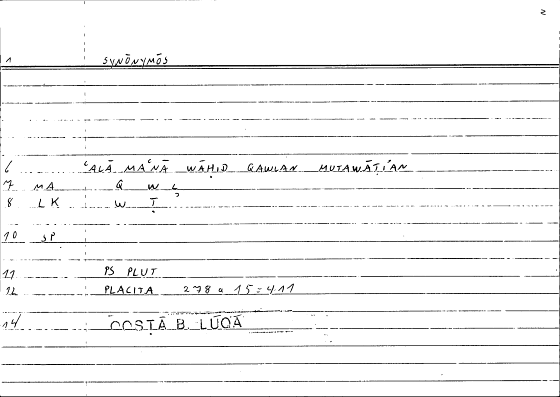 2
1 SYNŌNYMŌS
6 ʿALĀ MAʿNĀ WĀḤID QAWLAN MUTAWĀṬIʾAN
7 MA Q W L
8 LK W Ṭ ʾ
10 SP
11 PS PLUT
12 PLACITA 278 a 15 = 411
14 QOSṬĀ B. LŪQĀ